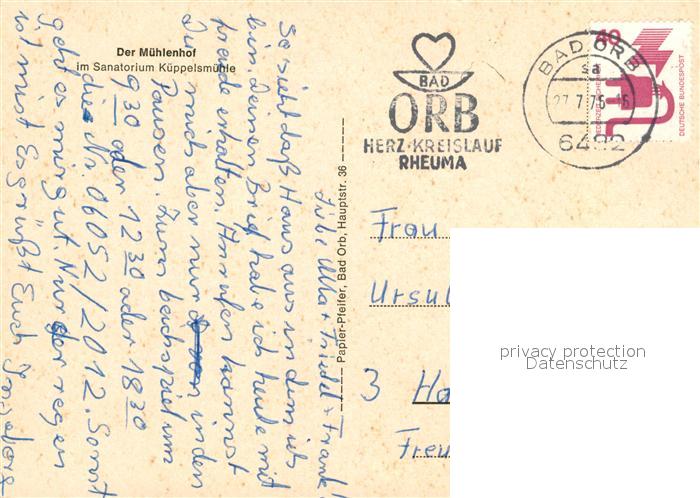 Der Mühlenhof
im Sanatorium Küppelsmühle
Liebe Ulla + Friedel + Frank!
So sieht daß Haus aus in dem ich
bin. Deinen Brief habe ich heute mit
freude erhalten. Anrufen kannst
Du mich aber nur in den
Pausen. Zum beichspiel um
9 30 oder 12 30 oder 18 30
die Nr. 06052/2012. Sonst
geht es mir gut. Nur der regen
ist mist. Es grüßt Euch
Papier-Pfeifer, Bad Orb, Hauptstr. 36
BAD
ORB
HERZ·KREISLAUF
RHEUMA
BAD ORB
a
27.7.76-15
6482
40
JEDERZEIT SICHERHEIT
DEUTSCHE BUNDESPOST
Frau
Ursul
3 Ha
Freu
privacy protection
Datenschutz